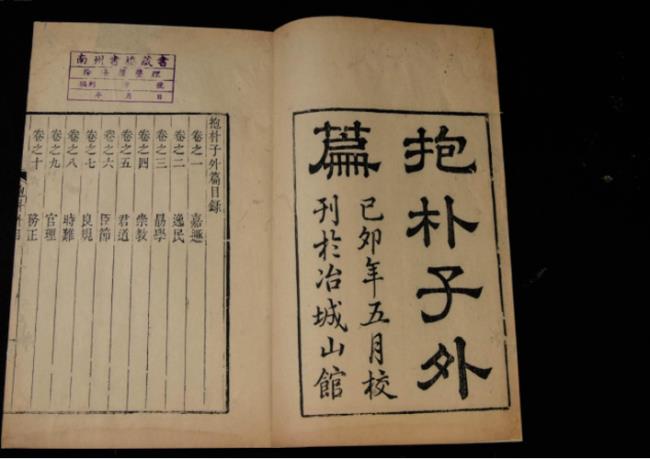 抱朴子外
篇
己卯年五月校
刊於冶城山館
南州書樓藏書
字 號
年 月 日
抱朴子外篇目錄
卷之一 嘉遯
卷之二 逸民
卷之三 勗學
卷之四 崇教
卷之五 君道
卷之六 臣節
卷之七 良規
卷之八 時難
卷之九 官理
卷之十 務正